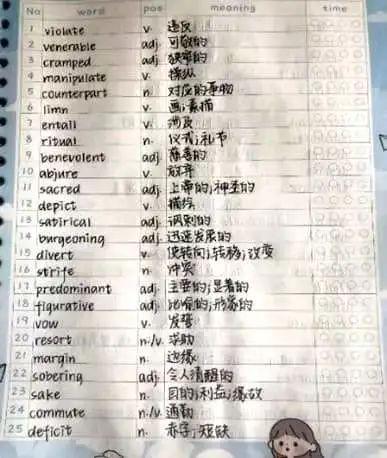 No word pos meaning time
1 violate v. 违反
2 venerable adj. 可敬的
3 cramped adj. 狭窄的
4 manipulate v. 操纵
5 counterpart n. 对应的事物
6 limn v. 画;素描
7 entail v. 涉及
8 ritual n. 仪式;礼节
9 benevolent adj. 慈善的
10 abjure v. 放弃
11 sacred adj. 上帝的;神圣的
12 depict v. 描绘
13 satirical adj. 讽刺的
14 burgeoning adj. 迅速发展的
15 divert v. 使转向;转移;改变
16 strife n. 冲突
17 predominant adj. 主要的;显著的
18 figurative adj. 比喻的;形象的
19 vow v. 发誓
20 resort n./v. 求助
21 margin n. 边缘
22 sobering adj. 令人清醒的
23 sake n. 目的;利益;缘故
24 commute n./v. 通勤
25 deficit n. 赤字;短缺